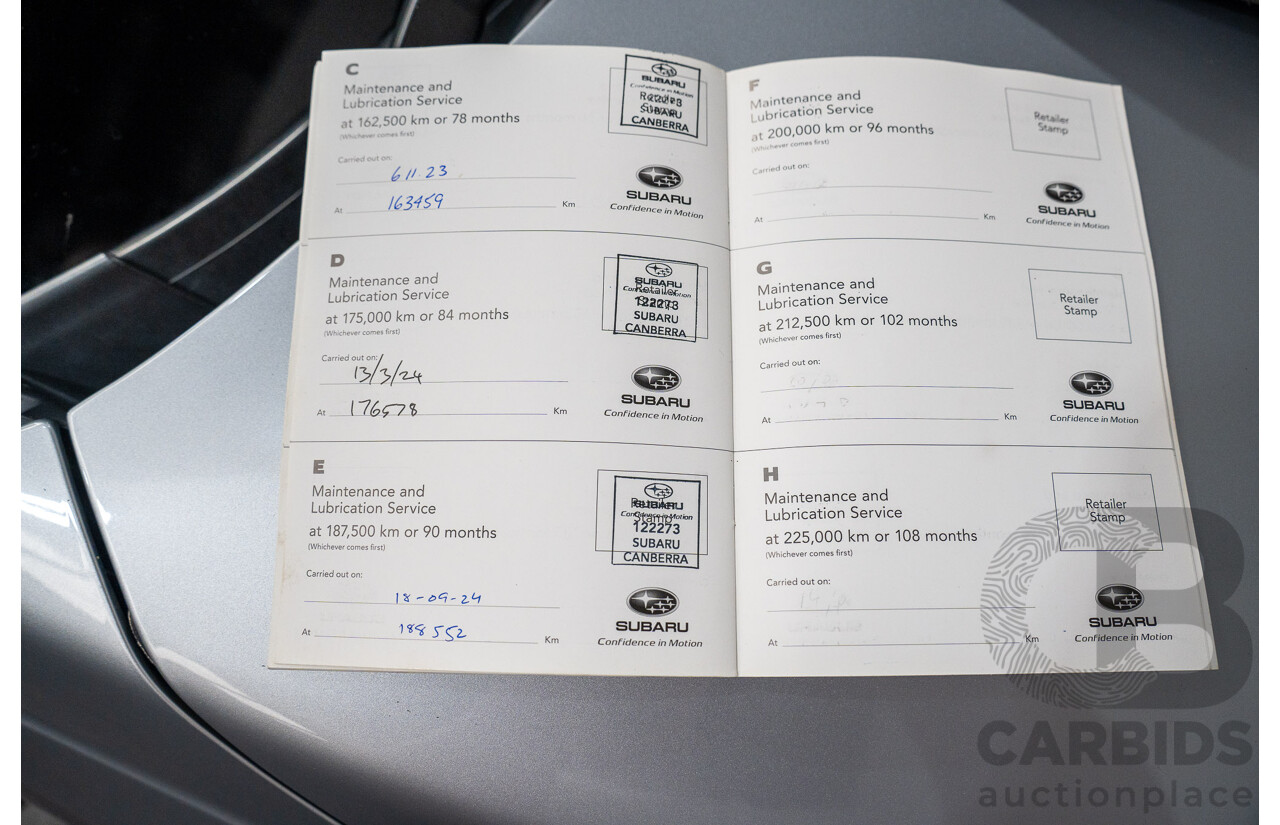 C
Maintenance and
Lubrication Service
at 162,500 km or 78 months
(Whichever comes first)
Carried out on:
6 11 23
At 163459 Km
SUBARU
Confidence in Motion
Retailer
Stamp
SUBARU
CANBERRA
SUBARU
Confidence in Motion
D
Maintenance and
Lubrication Service
at 175,000 km or 84 months
(Whichever comes first)
Carried out on:
13/3/24
At 176578 Km
SUBARU
Confidence in Motion
Retailer
Stamp
122273
SUBARU
CANBERRA
SUBARU
Confidence in Motion
E
Maintenance and
Lubrication Service
at 187,500 km or 90 months
(Whichever comes first)
Carried out on:
18-09-24
At 188552 Km
SUBARU
Confidence in Motion
Retailer
Stamp
122273
SUBARU
CANBERRA
SUBARU
Confidence in Motion
F
Maintenance and
Lubrication Service
at 200,000 km or 96 months
(Whichever comes first)
Carried out on:
At Km
Retailer
Stamp
SUBARU
Confidence in Motion
G
Maintenance and
Lubrication Service
at 212,500 km or 102 months
(Whichever comes first)
Carried out on:
At Km
Retailer
Stamp
SUBARU
Confidence in Motion
H
Maintenance and
Lubrication Service
at 225,000 km or 108 months
(Whichever comes first)
Carried out on:
At Km
Retailer
Stamp
SUBARU
Confidence in Motion
CB
CARBIDS
auctionplace